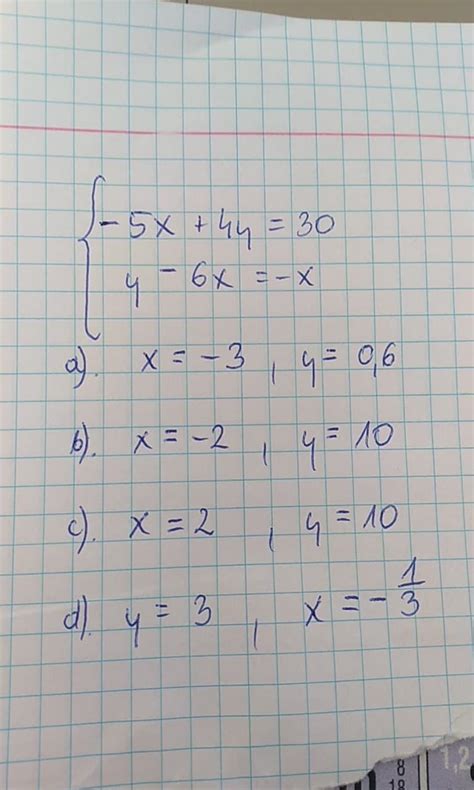 - 5x + 4y = 30
y - 6x = -x
a). x = -3 , y = 0,6
b). x = -2 , y = 10
c). x = 2 , y = 10
d). y = 3 , x = - 1/3
8
18
1,2